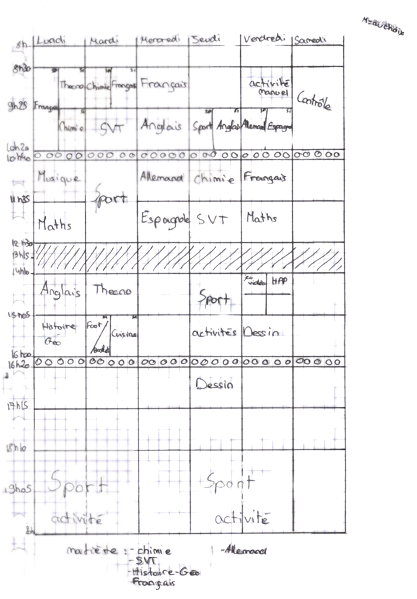 Lundi Mardi Mercredi Jeudi Vendredi Samedi
8h
8h30
Thecno Chimie Français Français activité manuel Contrôle
9h25 Français
Chimie SVT Anglais Sport Anglais Allemand Espagnol
10h20
10h40
Musique Sport Allemand Chimie Français
11h35
Maths Espagnole SVT Maths
12h30
13h15
14h10
Anglais Thecno Sport vidéo HPP
15h05
Histoire Géo Foot Cuisine activités Dessin
16h00
16h20
Dessin
17h15
18h10
19h05 Sport activité Sport activité
matière : - chimie - Allemand
- SVT
- Histoire-Géo
Français